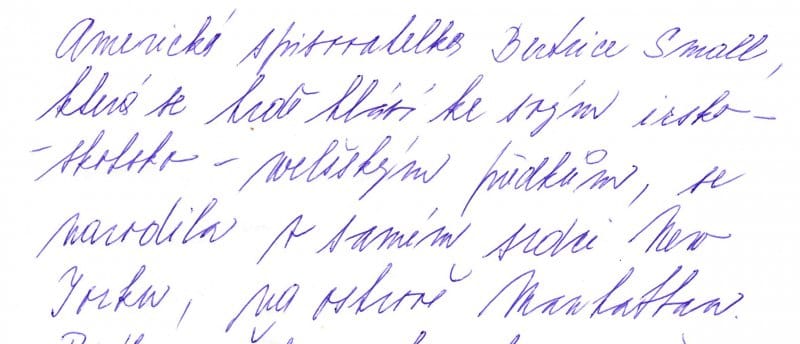 Americká spisovatelka Bertrice Small,
která se hrdě hlásí ke svým irsko-
-skotsko-welšským předkům, se
narodila v samém srdci New
Yorku, na ostrově Manhattan.